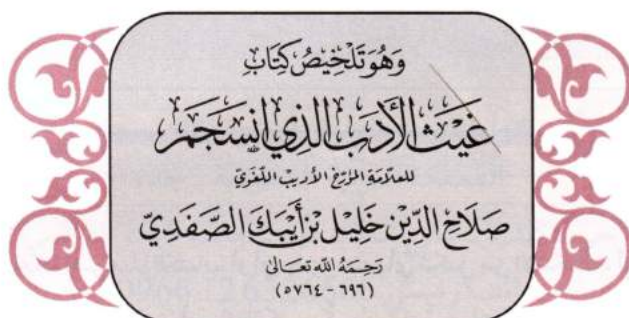 وَهُوَ تَلْخِيصُ كِتَابِ
غَيْثُ الأَدَبِ الَّذِي انْسَجَمَ
لِلعَلَّامَةِ المُؤَرِّخِ الأَدِيبِ اللُّغَوِيِّ
صَلَاحِ الدِّين خَلِيل بْنِ أَيْبَكَ الصَّفَدِيّ
رَحِمَهُ اللهُ تَعَالَىٰ
(٦٩٦ - ٧٦٤ه)